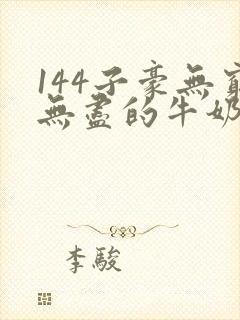 144子豪無窮
無盡的牛奶
李駿